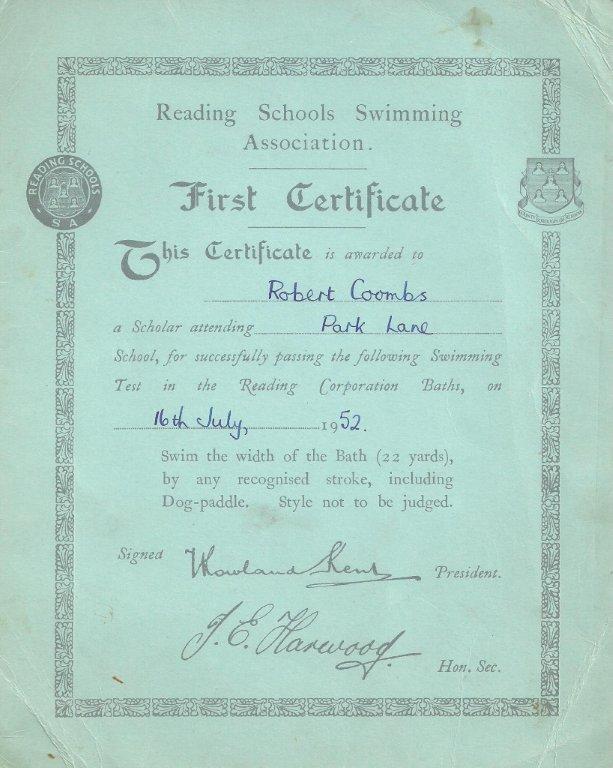 Reading Schools Swimming
Association.
First Certificate
READING SCHOOLS
S A
This Certificate is awarded to
Robert Coombs
a Scholar attending Park Lane
School, for successfully passing the following Swimming
Test in the Reading Corporation Baths, on
16th July, 1952.
Swim the width of the Bath (22 yards),
by any recognised stroke, including
Dog-paddle. Style not to be judged.
Signed
President.
J. E. Harwood
Hon. Sec.